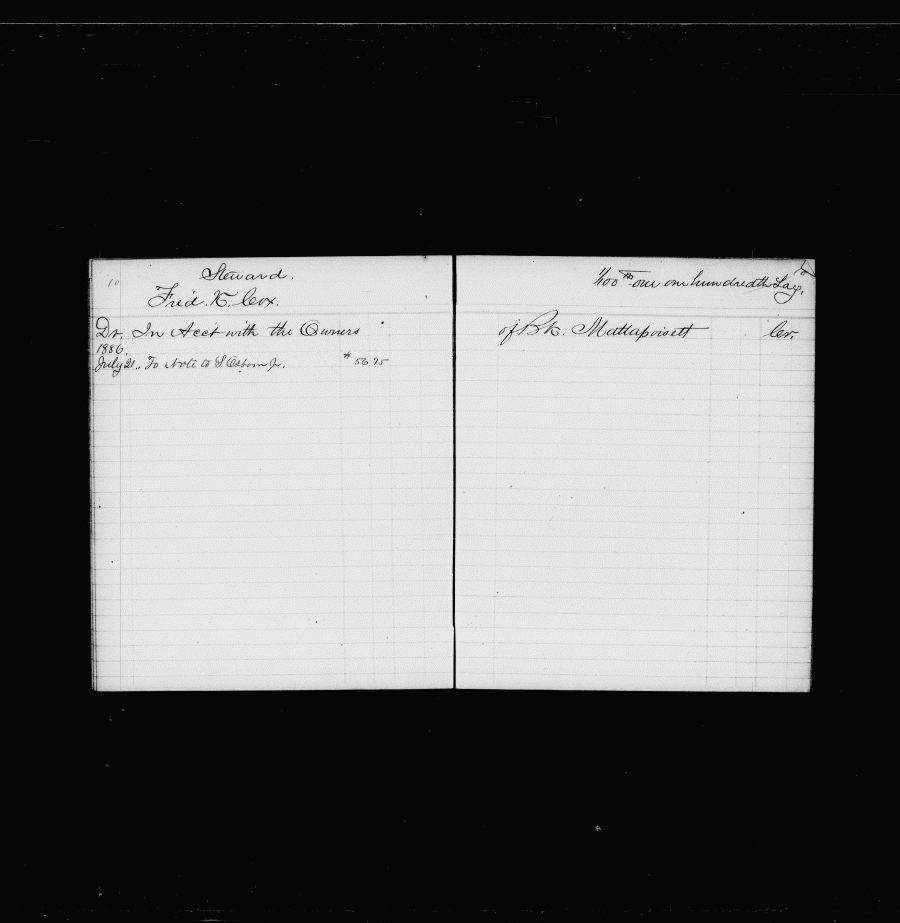 10
Steward.
Fred. K. Cox.
Dr. In Acct with the Owners
1886.
July 21. To Note to S Osborn Jr. $ 56.75
10
1/100th one one hundredth Lay.
of Bk. Mattapoisett Cr.